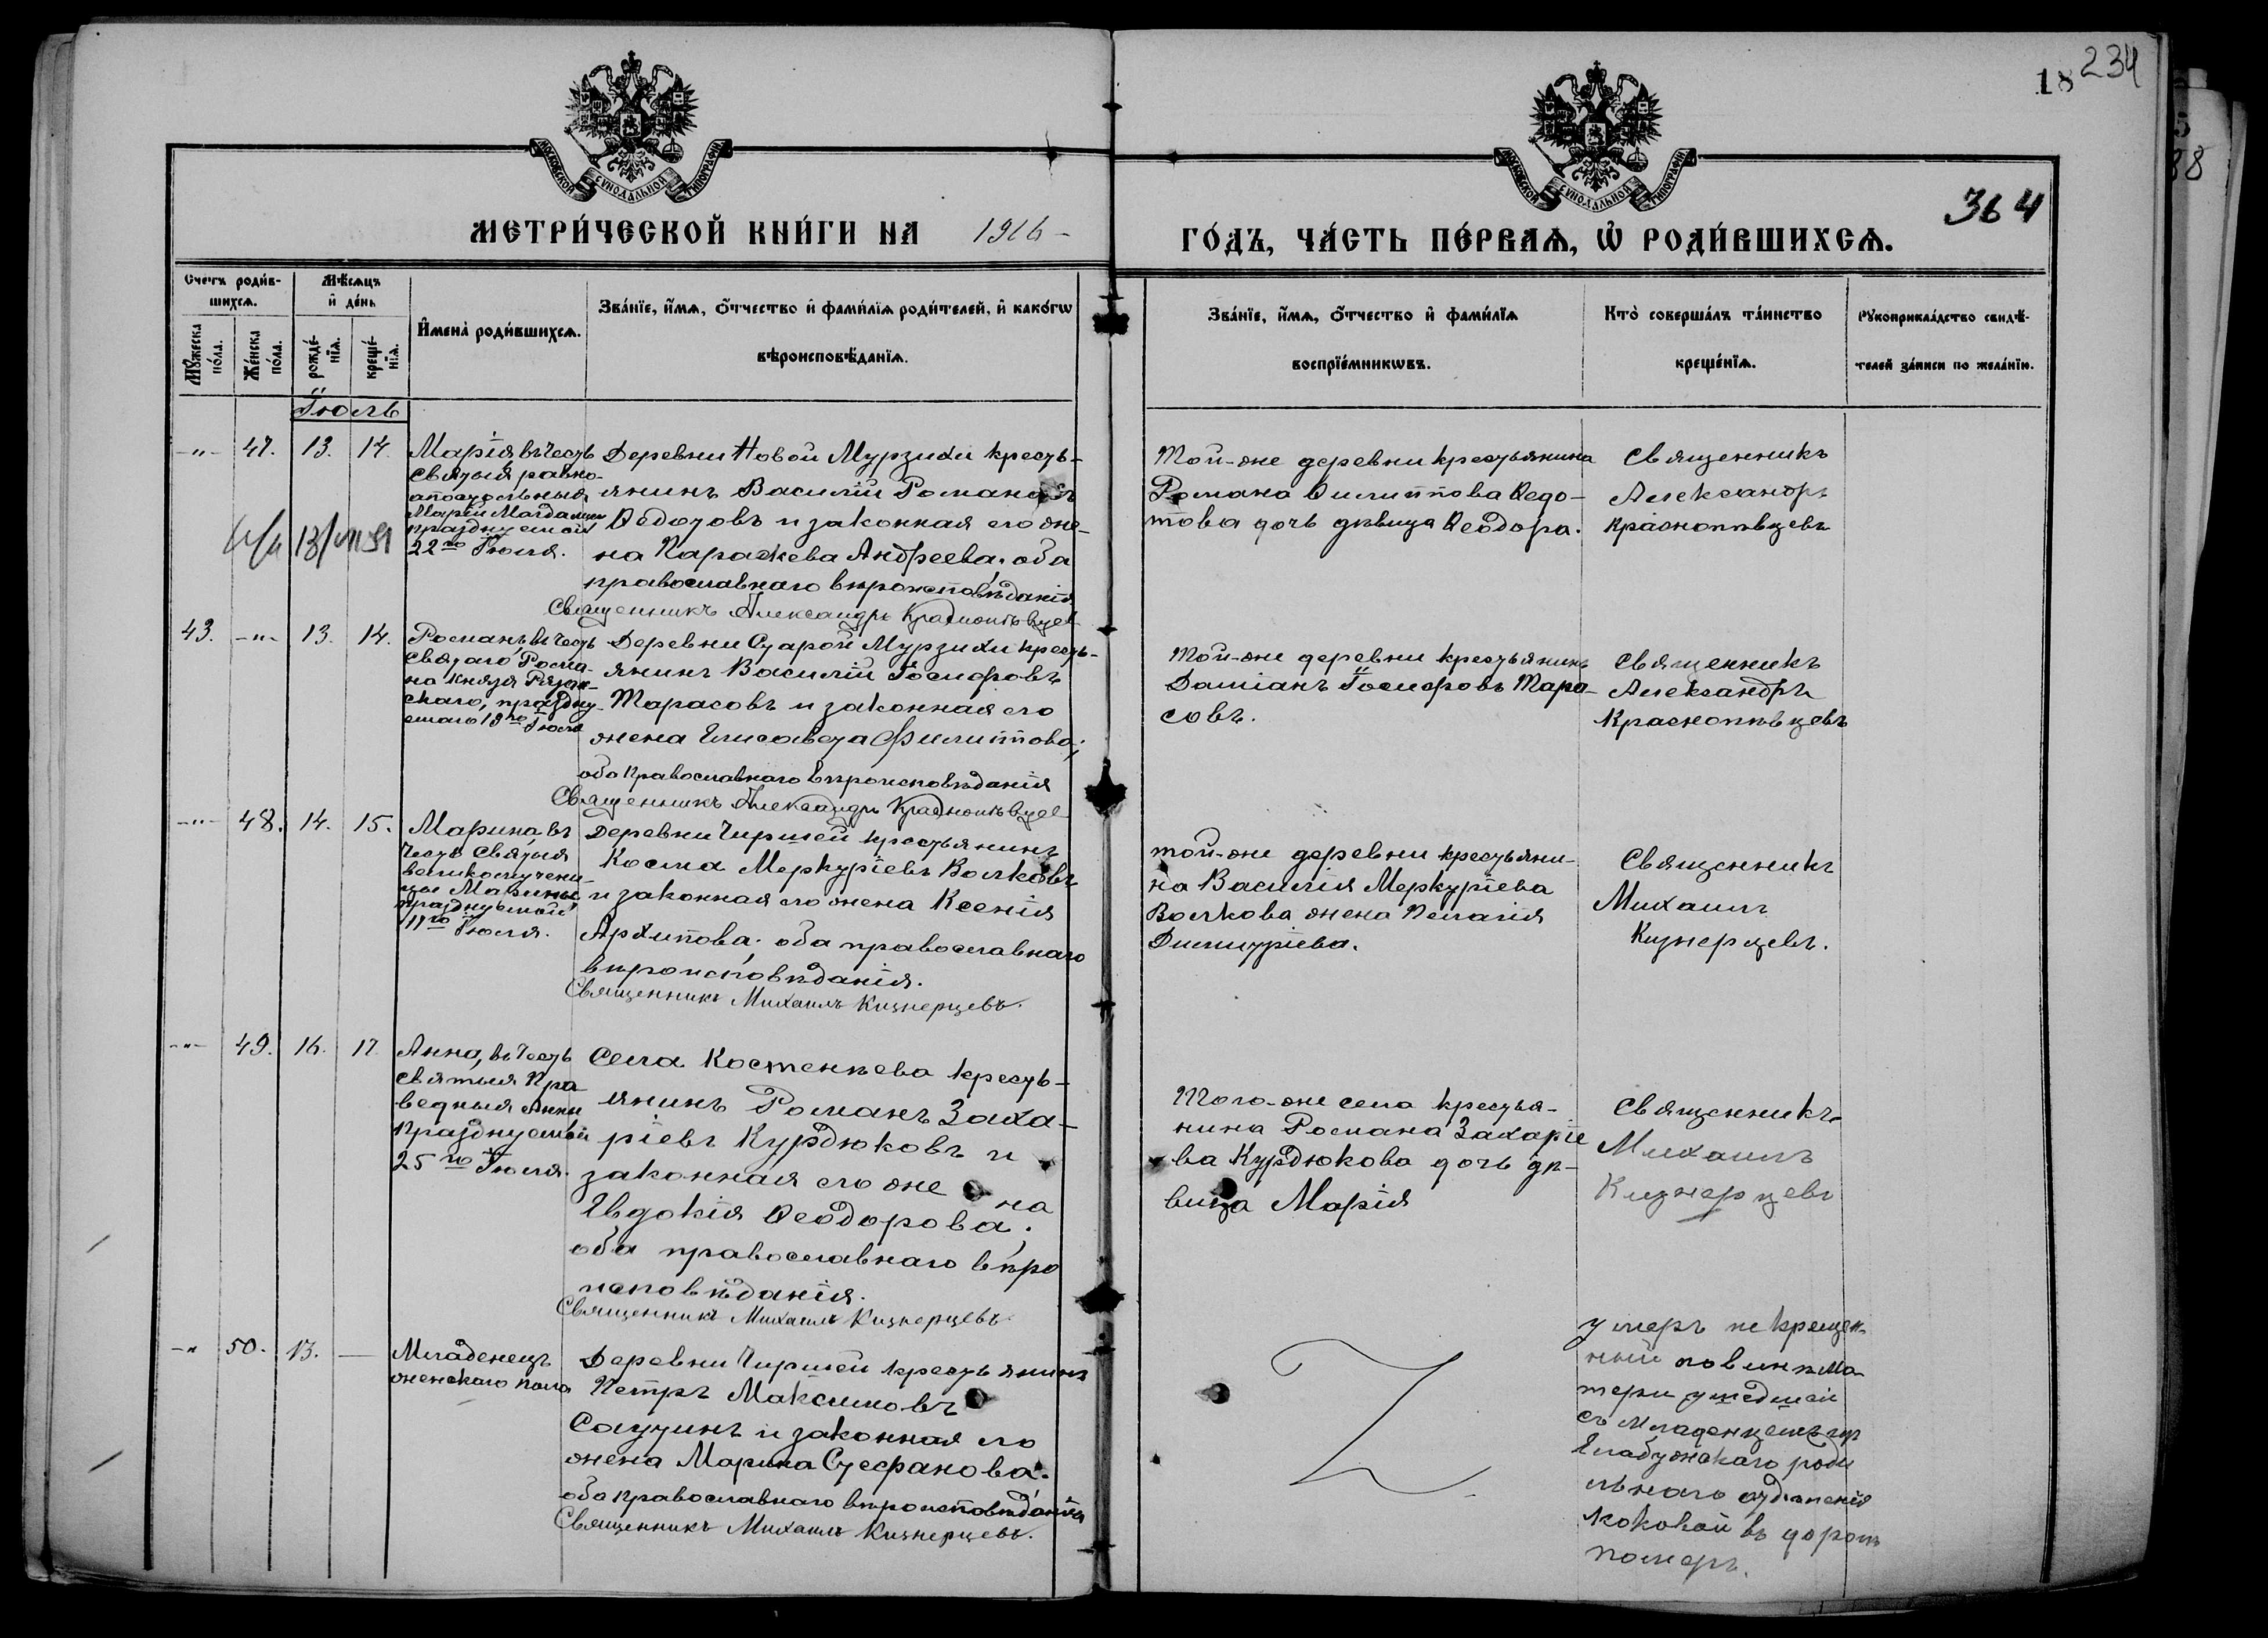 18 234
МОСКОВСКОЙ СУНОДАЛЬНОЙ ТИПОГРАФІИ
МОСКОВСКОЙ СУНОДАЛЬНОЙ ТИПОГРАФІИ
364
МЕТРИ́ЧЕСКОЙ КНИ́ГИ НА 1916 -
ГО́ДЪ, ЧА́СТЬ ПЕ́РВАѦ, Ѡ҆ РОДИ́ВШИХСѦ.
Сче́тъ роди́в-
шихсѧ.
Мѣ́сѧцъ
и҆ де́нь
Мꙋ́жеска
по́ла.
Же́нска
по́ла.
рожде́-
нїѧ.
креще́-
нїѧ.
И҆мена̀ роди́вшихсѧ.
Зва́нїе, и҆́мѧ, ѻ҆́тчество и҆ фами́лїѧ роди́телей, и҆ како́гѡ
вѣроисповѣ́данїѧ.
Зва́нїе, и҆́мѧ, ѻ҆́тчество и҆ фами́лїѧ
воспрїе́мникѡвъ.
Кто̀ соверша́лъ та́инство
креще́нїѧ.
Рꙋкоприкла́дство свидѣ́-
телей за́писи по жела́нїю.
Іюль
-„- 47. 13. 14.
Марія въ честь
святыя равно-
апостольныя
Маріи Магдалины
празднуемой
22го Іюля.
Деревни Новой Мурзихи кресть-
янинъ Василій Романовъ
Ѳедотовъ и законная его же-
на Параскева Андреева; оба
православнаго вѣроисповѣданія
Священникъ Александръ Краснопѣвцев
Той-же деревни крестьянина
Романа Филиппова Ѳедо-
това дочь дѣвица Ѳеодора.
Священникъ
Александръ
Краснопѣвцевъ
43. -„- 13. 14.
Романъ, въ честь
святаго Рома-
на князя Рязан-
скаго, праздну-
емаго 19го Іюля
Деревни Старой Мурзихи кресть-
янинъ Василій Іосифовъ
Тарасовъ и законная его
жена Елисавета Филиппова;
оба православнаго вѣроисповѣданія
Священникъ Александръ Краснопѣвцев
Той-же деревни крестьянинъ
Даміанъ Іосифовъ Тара-
совъ.
Священникъ
Александръ
Краснопѣвцевъ
-„- 48. 14. 15.
Марина, въ
честь святыя
великомучени-
цы Марины
празднуемой
17го Іюля.
Деревни Чиршей крестьянинъ
Косма Меркуріевъ Волковъ
и законная его жена Ксенія
Архипова; оба православнаго
вѣроисповѣданія.
Священникъ Михаилъ Кизнерцевъ.
той-же деревни крестьяни-
на Василія Меркуріева
Волкова жена Пелагія
Димитріева.
Священникъ
Михаилъ
Кизнерцевъ.
-„- 49. 16. 17.
Анна, въ честь
святыя Пра
ведныя Анны
празднуемой
25го Іюля.
Села Костенеева кресть-
янинъ Романъ Заха-
ріевъ Курдюковъ и
законная его же на
Евдокія Ѳеодорова;
оба православнаго вѣро
исповѣданія.
Священникъ Михаилъ Кизнерцевъ.
Того-же села крестья-
нина Романа Захаріе
ва Курдюкова дочь дѣ-
вица Марія
Священникъ
Михаилъ
Кизнерцевъ
-„ 50. 13. —
Младенецъ
женскаго пола
Деревни Чиршей крестьянинъ
Петръ Максимовъ
и законная его
жена Марина Стефанова;
оба православнаго вѣроисповѣданія
Священникъ Михаилъ Кизнерцевъ.
умеръ не крещен-
ный по винѣ ма-
тери ушедшей
съ младенцемъ изъ
Елабужскаго роди
льнаго отдѣленія
каковой въ дорогѣ
померъ.